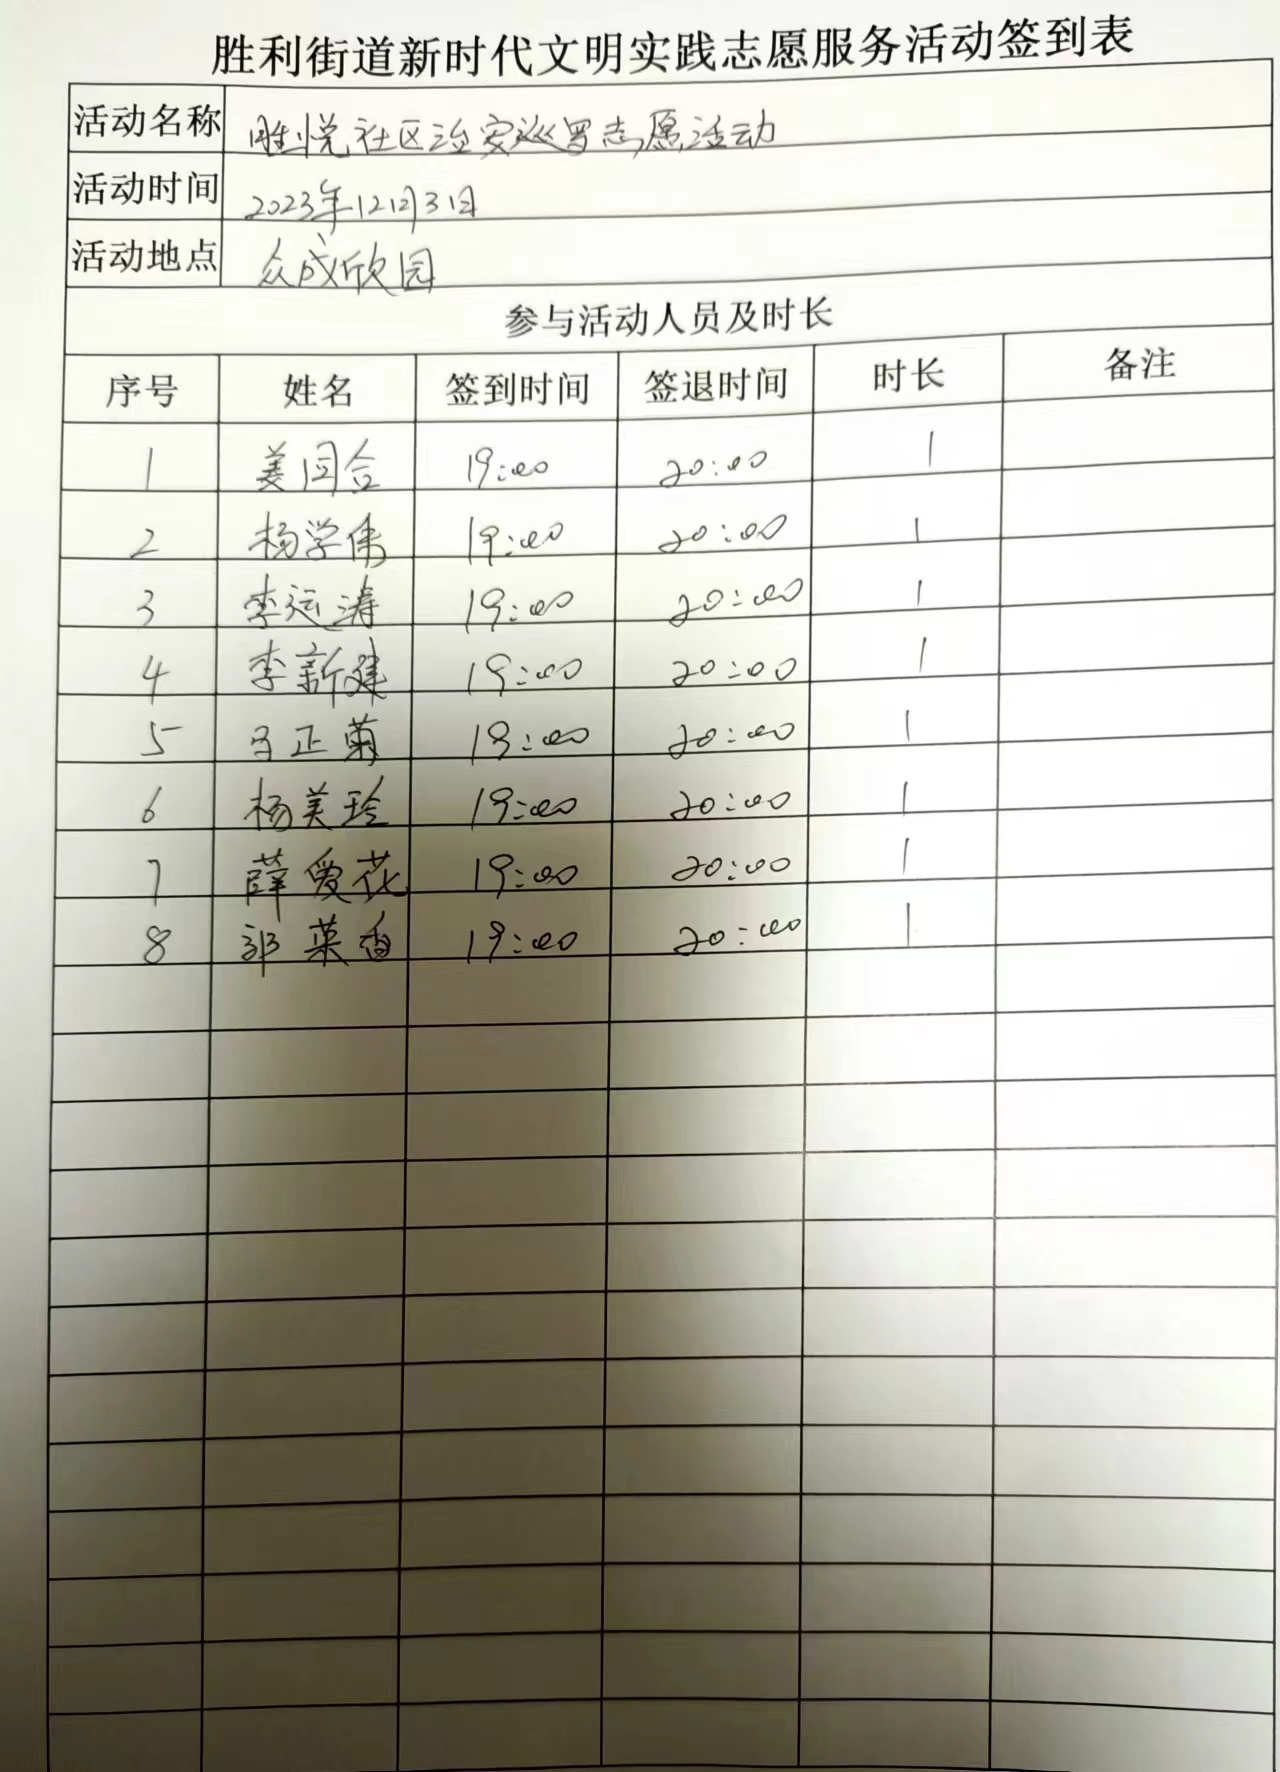 胜利街道新时代文明实践志愿服务活动签到表
活动名称 胜悦社区治安巡罗志愿活动
活动时间 2023年12月3日
活动地点 众成欣园
参与活动人员及时长
序号 姓名 签到时间 签退时间 时长 备注
1 姜同合 19:00 20:00 1
2 杨学伟 19:00 20:00 1
3 李运涛 19:00 20:00 1
4 李新建 19:00 20:00 1
5 马正菊 19:00 20:00 1
6 杨美玲 19:00 20:00 1
7 薛爱花 19:00 20:00 1
8 郭菜香 19:00 20:00 1